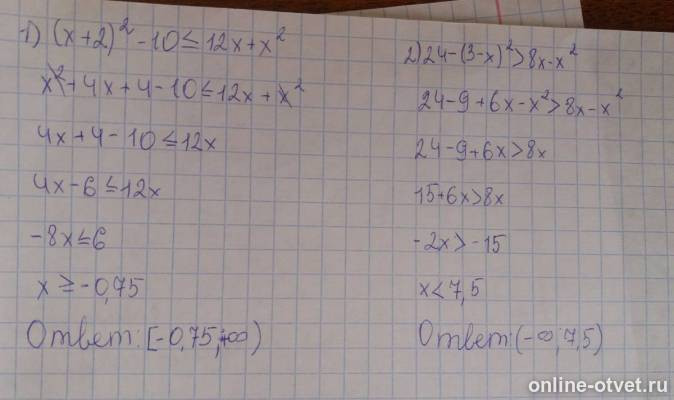 1) (x+2)² - 10 ≤ 12x + x²
x² + 4x + 4 - 10 ≤ 12x + x²
4x + 4 - 10 ≤ 12x
4x - 6 ≤ 12x
-8x ≤ 6
x ≥ -0,75
Ответ: [-0,75; +∞)
2) 24 - (3-x)² > 8x - x²
24 - 9 + 6x - x² > 8x - x²
24 - 9 + 6x > 8x
15 + 6x > 8x
-2x > -15
x < 7,5
Ответ: (-∞; 7,5)
online-otvet.ru